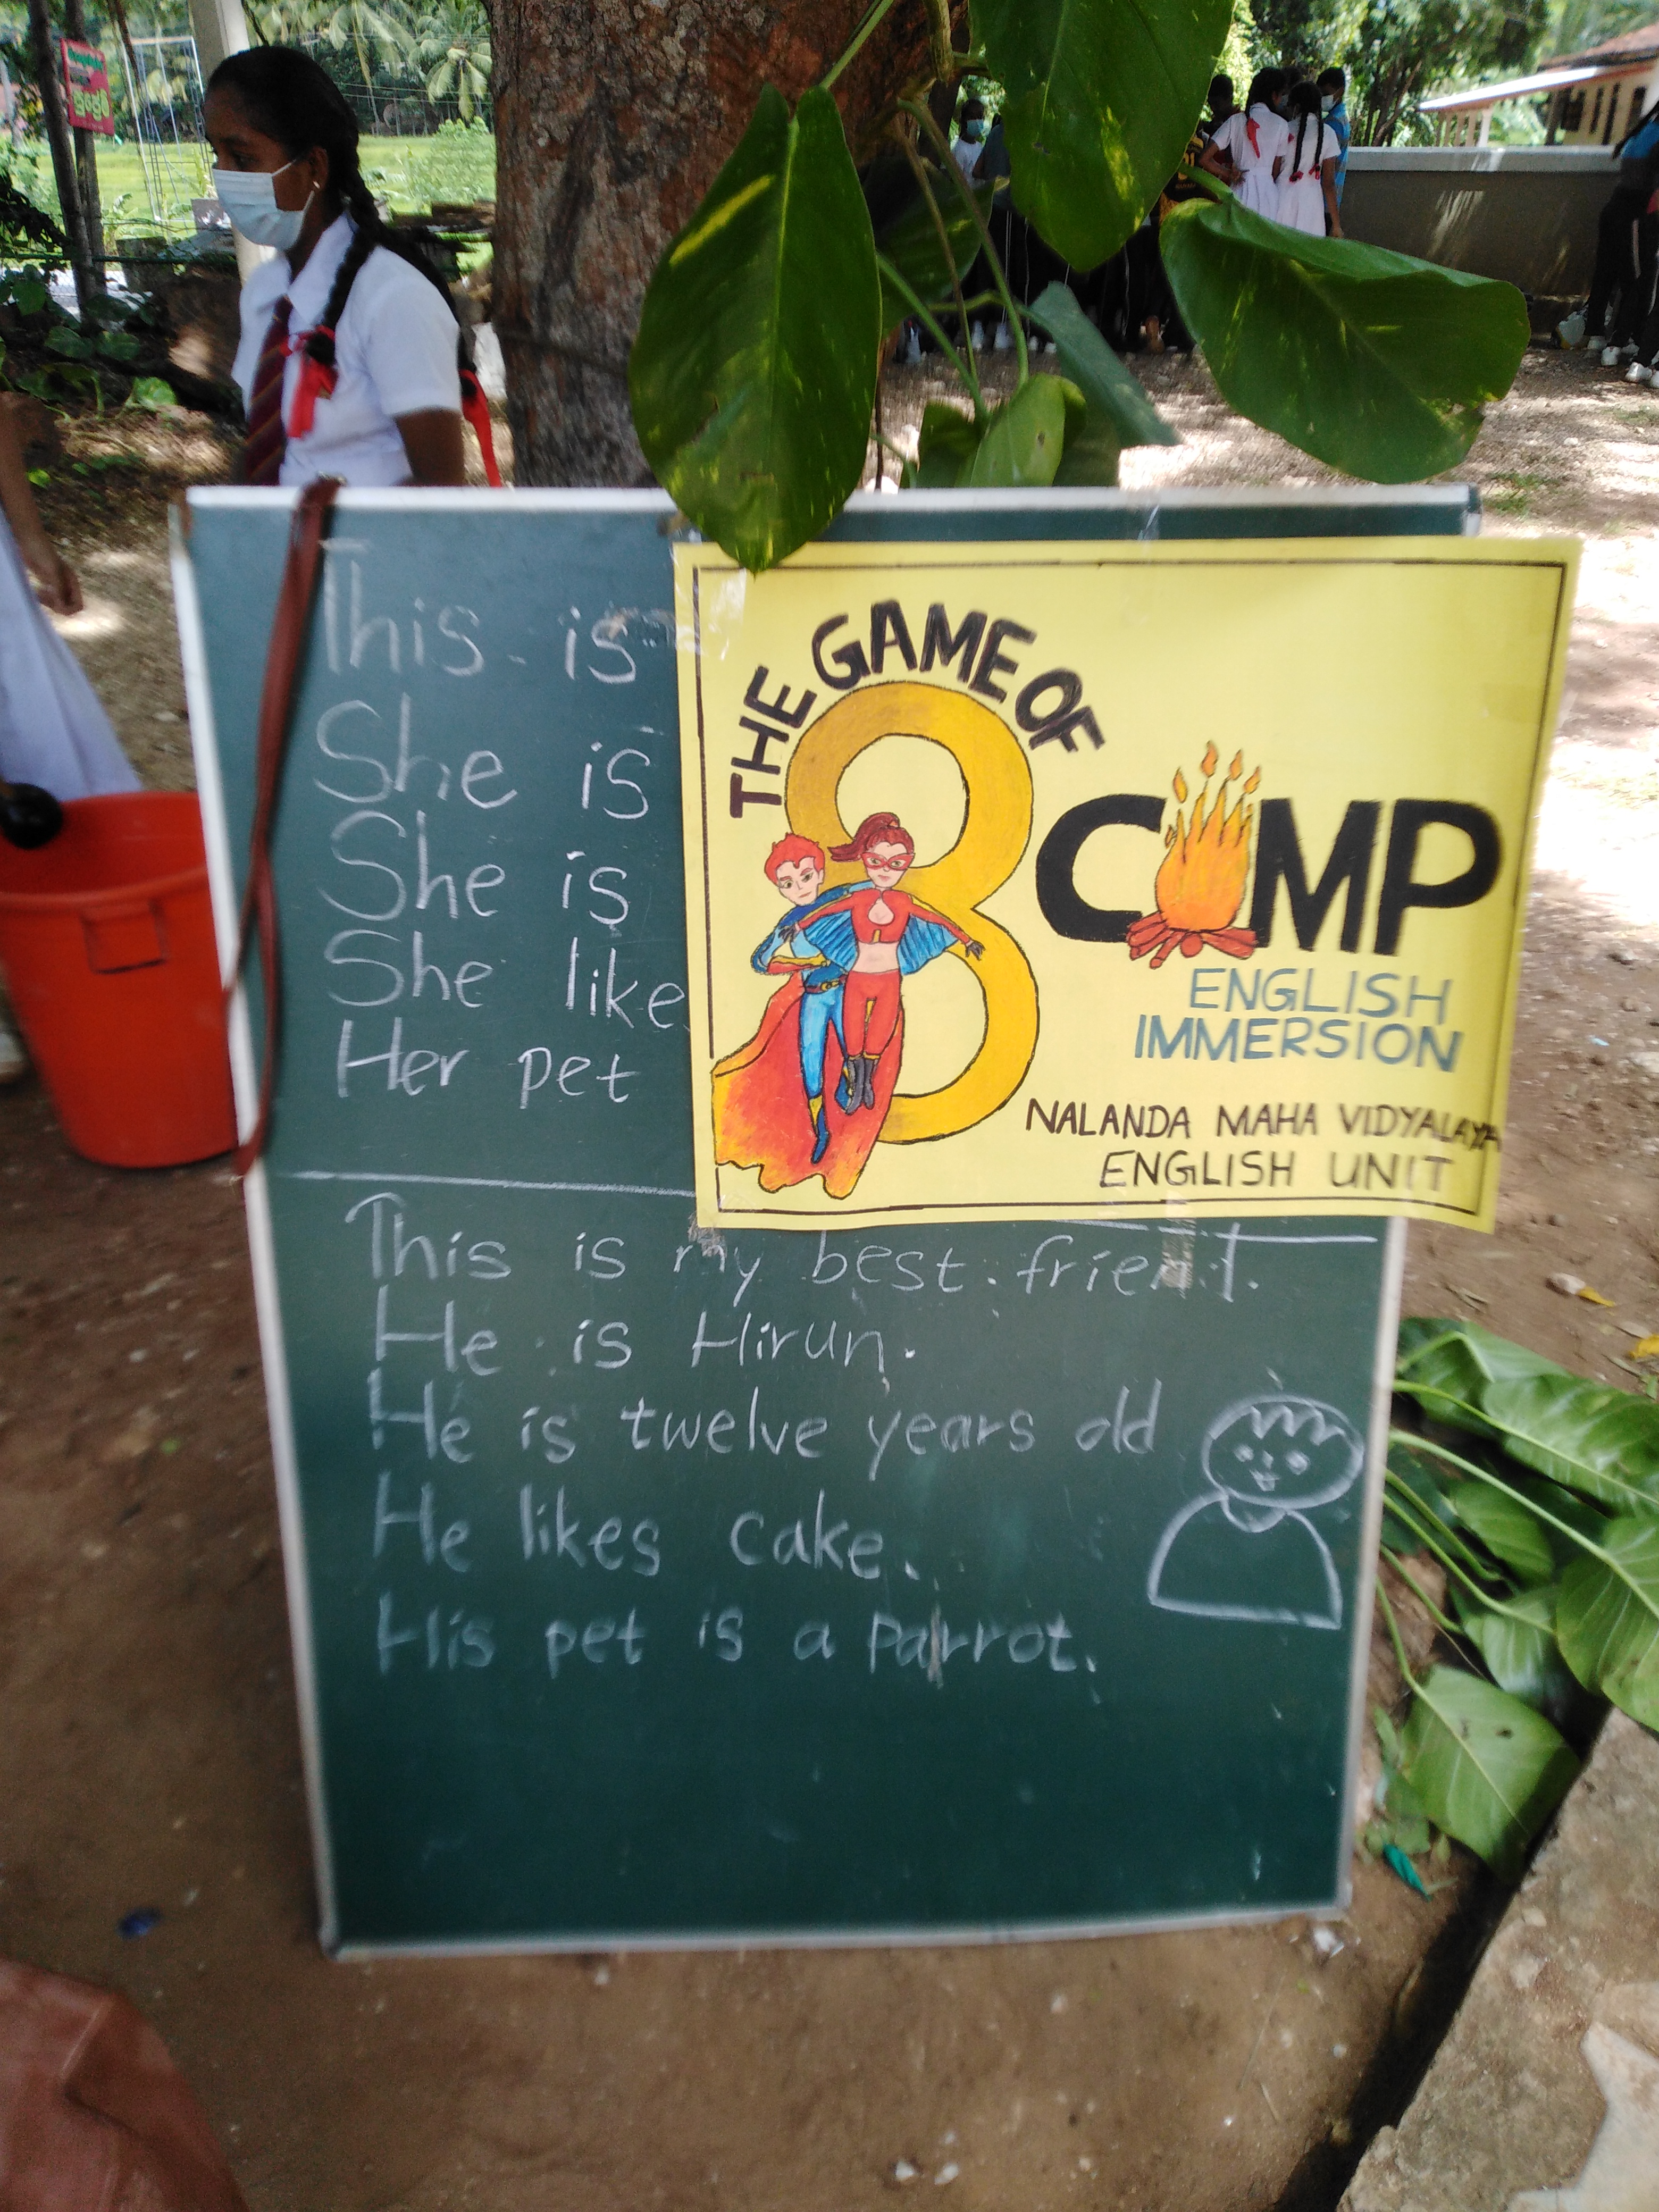 This is
She is
She is
She like
Her pet
THE GAME OF
8
CAMP
ENGLISH
IMMERSION
NALANDA MAHA VIDYALAYA
ENGLISH UNIT
This is my best
He is Hirun.
He is twelve years old
He likes cake.
His pet is a parrot.